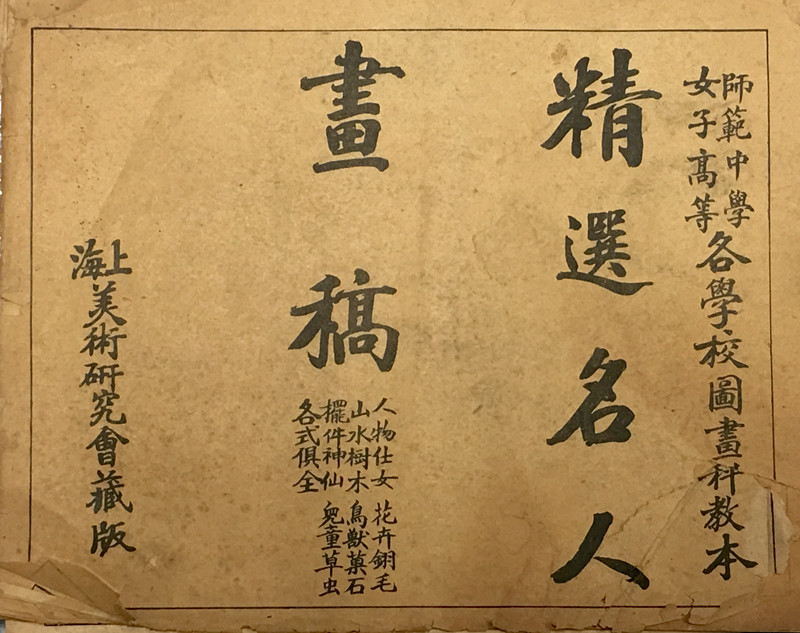 師範中學
女子高等
各學校圖畫科教本
精選名人
畫稿
人物仕女 花卉翎毛
山水樹木 鳥獸菓石
擺件神仙 兒童草虫
各式俱全
上海美術研究會藏版